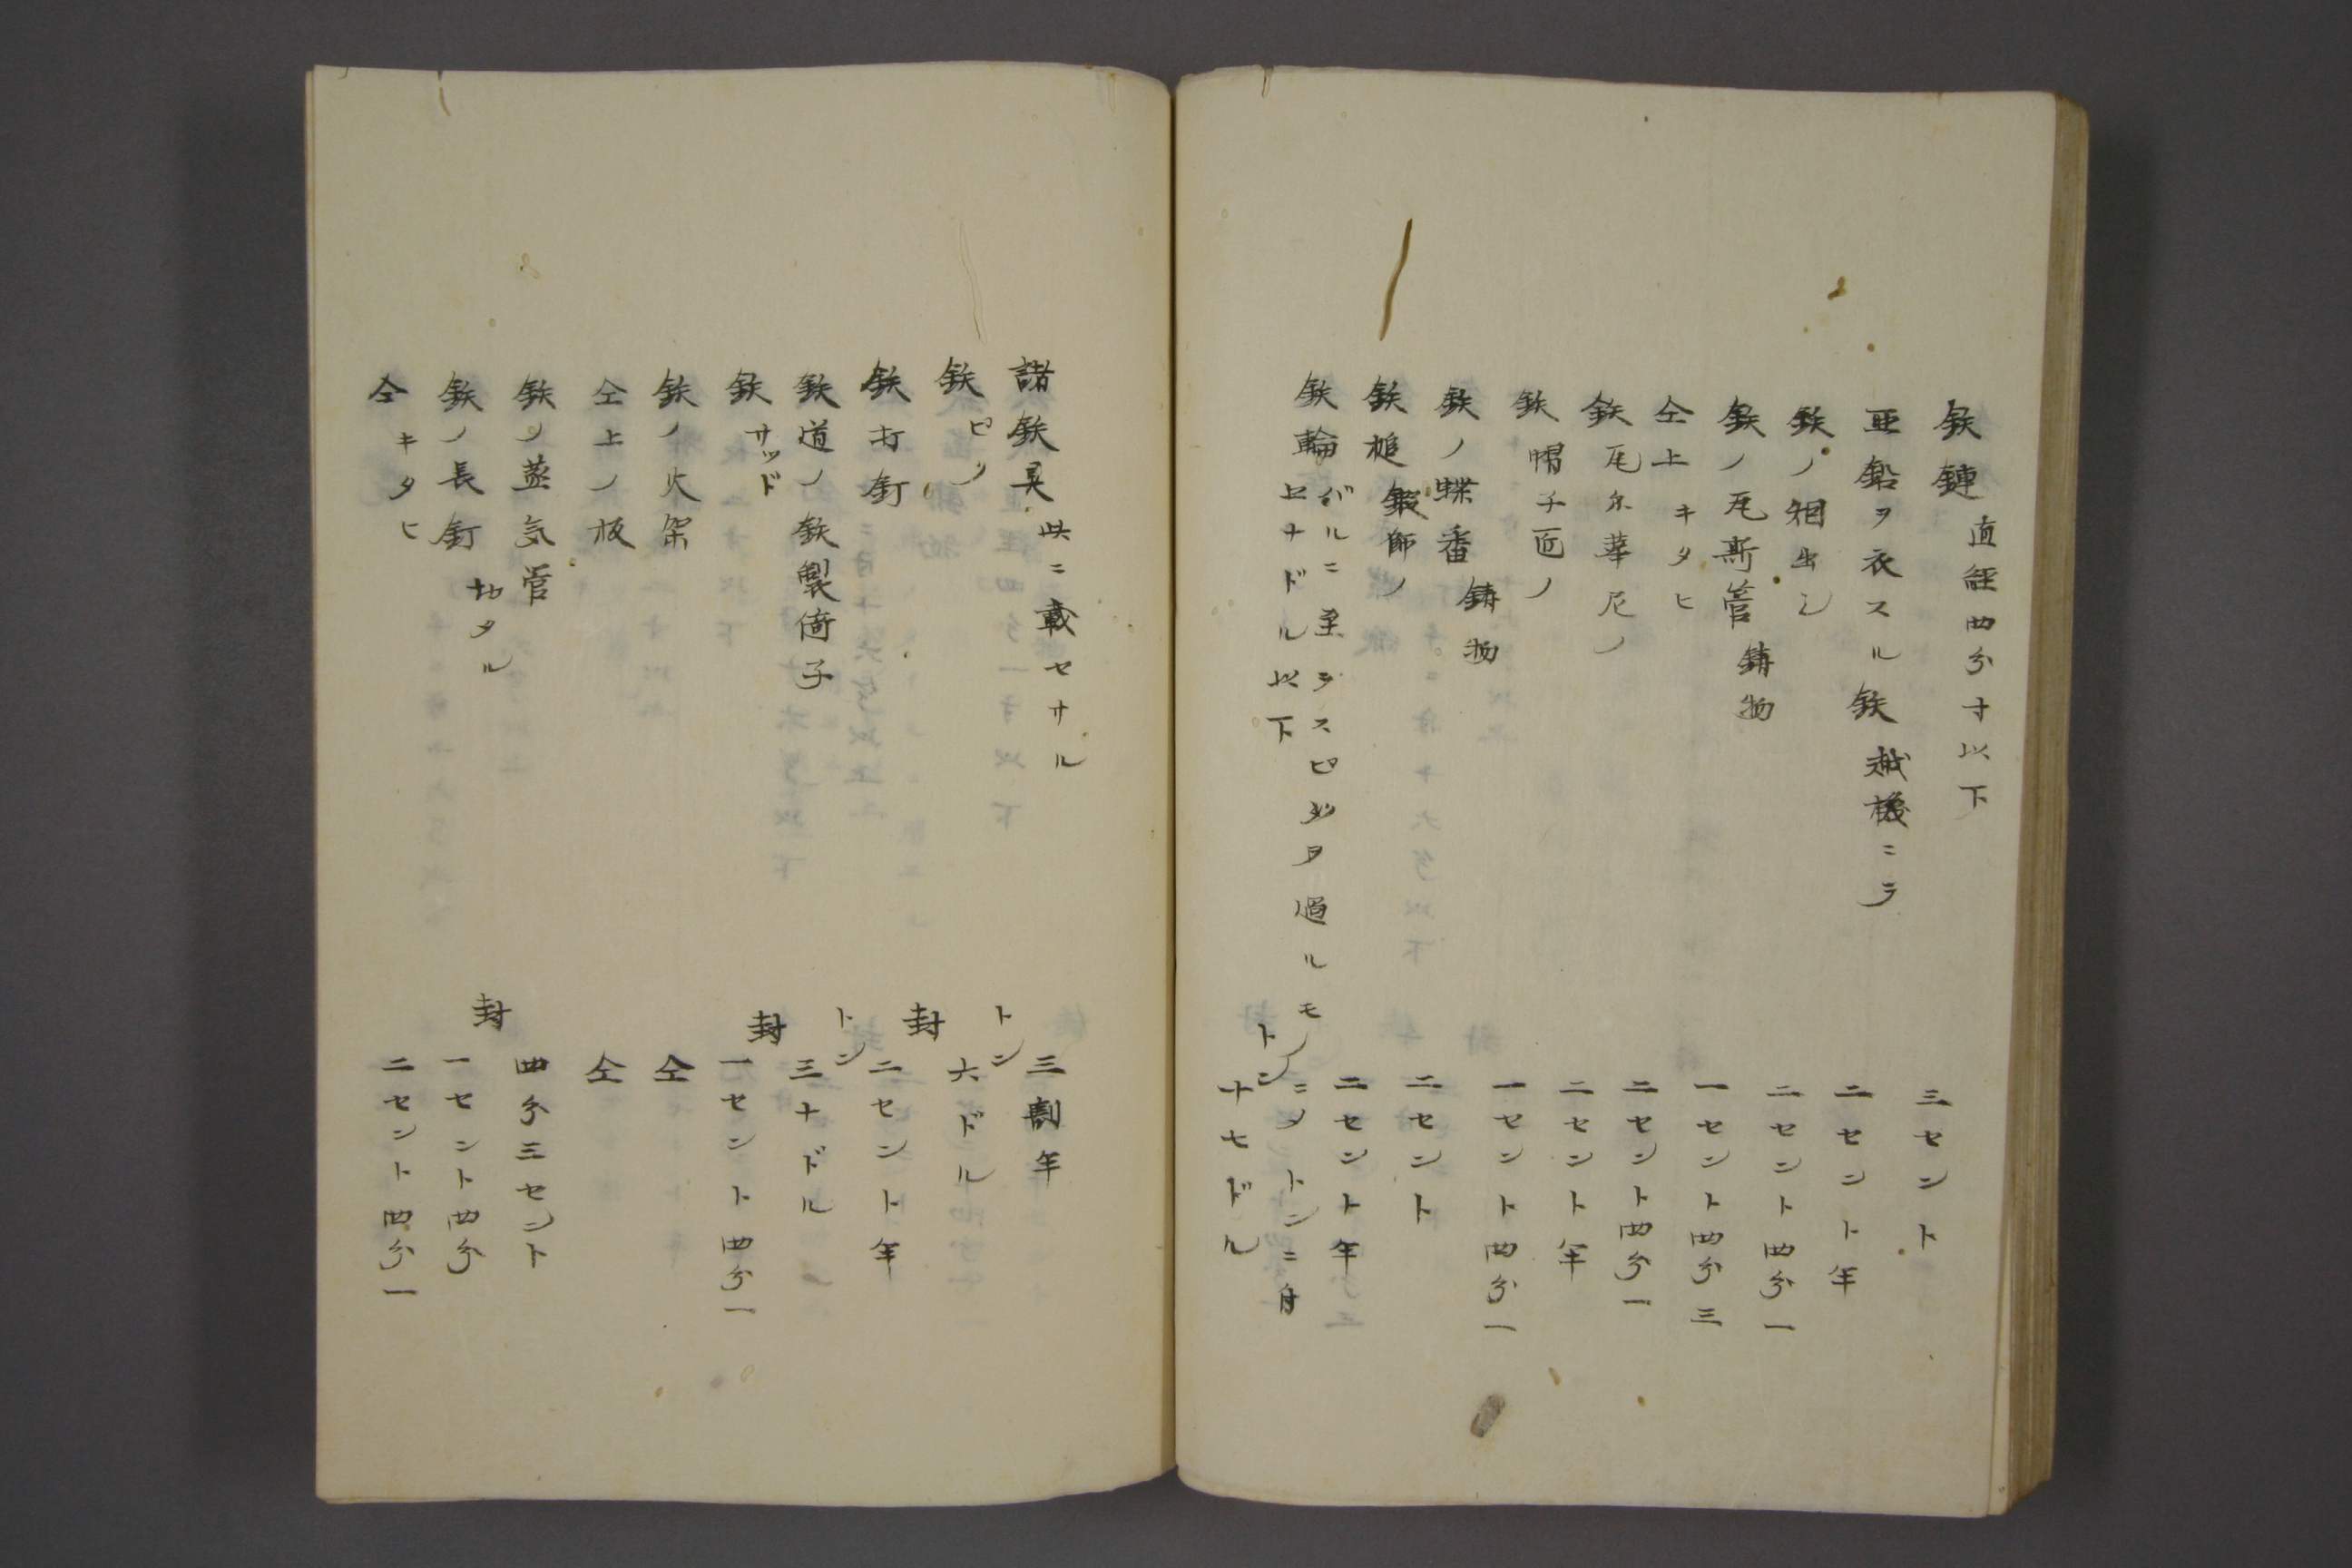 鉄鏈 直經四分寸以下 三セント
亜鉛ヲ衣スル鉄 二セント半
鉄ノ 出シ 二セント四分一
鉄ノ瓦斯管 鋳物 一セント四分三
仝上 キタヒ 二セント四分一
鉄 尼 二セント半
鉄 帽子匠ノ 一セント四分一
鉄ノ蝶番 鋳物 二セント
鉄槌 鍛師ノ 二セント半
鉄輪 バルニ至ラスピ ヲ過ルモノ
上ナドル以下 トン 十七ドル
諸鉄具 此ニ載セサル 三割半
鉄 ピノ トン 六ドル
鉄打釘 封 二セント半
鉄道ノ鉄製倚子 トン 三十ドル
鉄 サッド 封 一セント四分一
鉄ノ火架 仝
仝上ノ板 仝
鉄ノ蒸気管 四分三セント
鉄ノ長釘 切タル 封 一セント四分
仝 キタヒ 二セント四分一